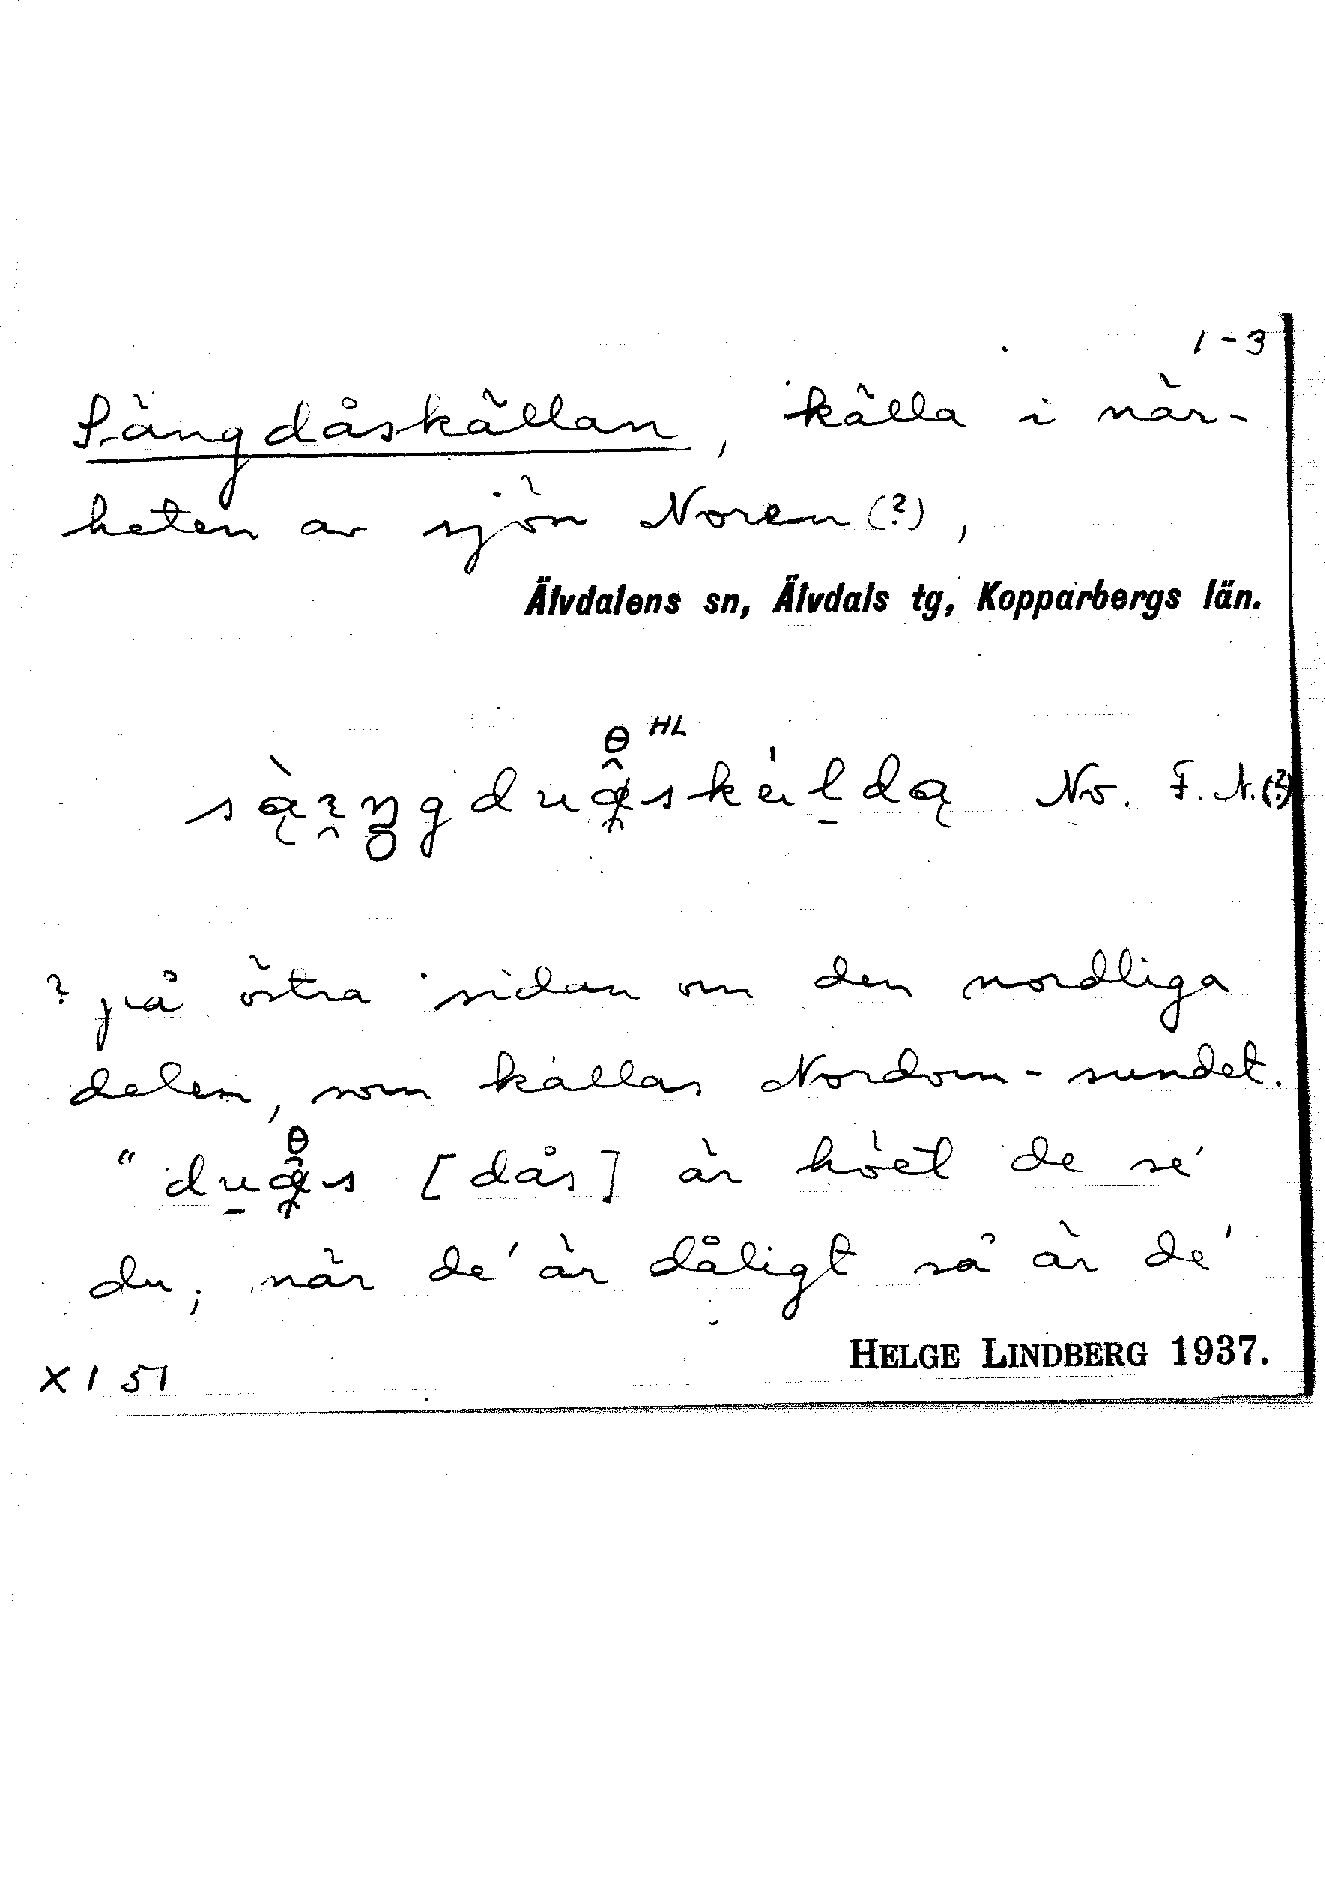 1-3
Sängdåskällan, källa i när-
heten av sjön Noren (?),
Älvdalens sn, Älvdals tg, Kopparbergs län.
HL
No. F. N. (?)
? på östra sidan om den nordliga
delen, som kallas Nordom-sundet.
" [dås] är höet de se'
du, när de' är dåligt så är de'
HELGE LINDBERG 1937.
X I 51